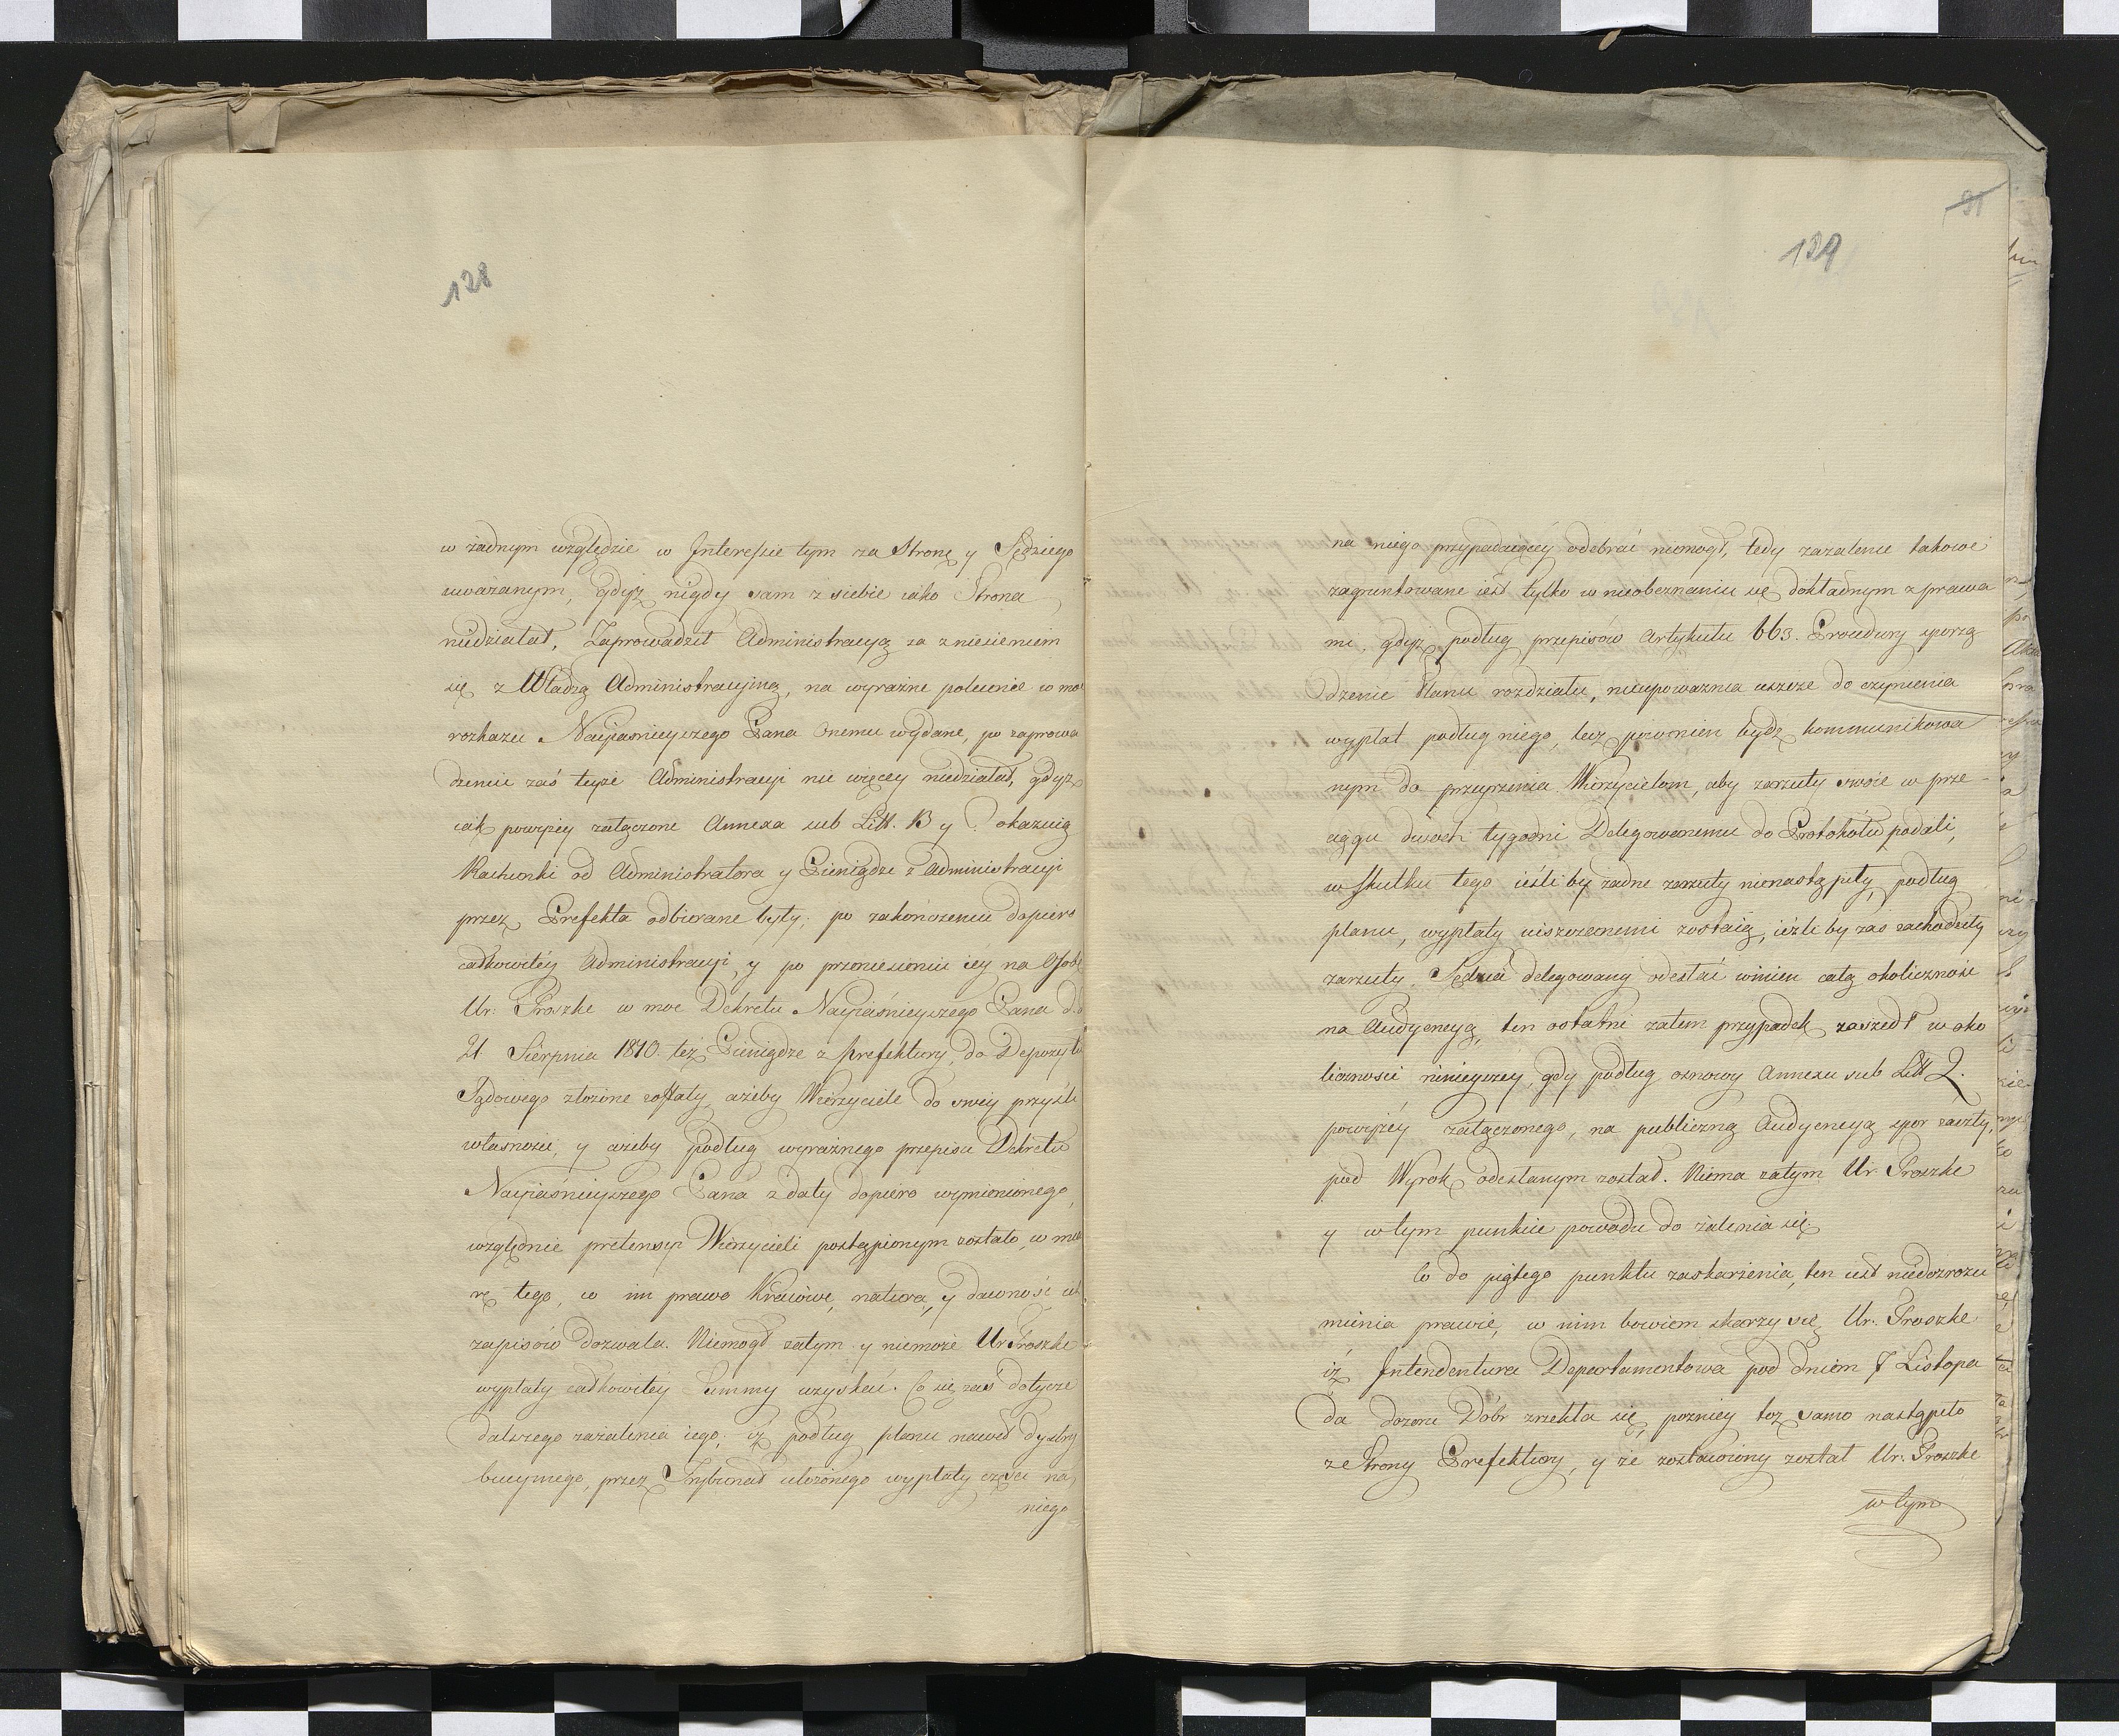 128
w żadnym względzie w Interessie tym za Stronę y Sędziego
uważanym, gdyż nigdy sam z siebie iako Strona
niedziałał. Zaprowadził Administracyą za zniesieniem
się z Władzą Administracyiną, na wyraźne polecenie w moc
rozkazu Nayiasnieyszego Pana onemu wydane, po zaprowa
dzeniu zaś teyże Administracyi nic więcey niedziałał, gdyż
iak powyżey załączone Annexa sub Litt. B y okazuią
Rachunki od Administratora y Pieniądze z Administracyi
przez Prefekta odbierane były; po zakończeniu dopiero
całkowitey Administracyi, y po przeniesieniu iey na Osobę
Ur: Proszke w moc Dekretu Nayiaśnieyszego Pana d. d.
21 Sierpnia 1810. też Pieniądze z Prefektury, do Depozytu
Sądowego złożone zostały, ażeby Wierzyciele do swey przyszli
własności, y ażeby podług wyraźnego przepisu Dekretu
Nayiaśnieyszego Pana z daty dopiero wymienionego,
względnie pretensyi Wierzycieli postąpionym zostało, w mia
rę tego, co im prawo Kraiowe, natura, y dawność ich
zapisów dozwala. Niemogł zatym y niemoże Ur Proszke
wypłaty całkowitey Summy uzyskać. Co się zaś dotycze
dalszego zażalenia iego, iż podług planu nawet dystry
bucyinego, przez Trybunał ułożonego wypłaty części na
niego
91
129
na niego przypadaiącey odebrać niemogł, tedy zażalenie takowe
zagruntowane iest tylko w nieobeznaniu się dokładnym z prawa
mi, gdyż podług przepisów Artykułu 663. Procedury sporzą
dzenie Planu rozdziału, nieupoważnia ieszcze do czynienia
wypłat podług niego, lecz powinien bydź kommunikowa
nym do przeyrzenia Wierzycielom, aby zarzuty swoie w prze-
ciągu dwoch tygodni Delegowanemu do Protokołu podali,
w skutku tego ieśliby żadne zarzuty nienastąpiły, podług
planu, wypłaty uiszczonemi zostaią, ieżliby zaś zachodziły
zarzuty, Sędzia delegowany odesłać winien całą okoliczność
na Audyencyą, ten ostatni zatem przypadek zaszedł w oko
liczności ninieyszey, gdy podług osnowy Annexu sub Litt Q.
powyżey załączonego, na publiczną Audyencyą spor zaszły,
pod Wyrok odesłanym został. Niema zatym Ur. Proszke
y w tym punkcie powodu do żalenia się.
Co do piątego punktu zaskarżenia, ten iest niedozrozu
mienia prawie, w nim bowiem skarzy się Ur. Proszke
iż Intendentura Departamentowa pod dniem 7 Listopa
da dozoru Dóbr zrzekła się, pozniey toż samo nastąpiło
ze strony Prefektury, y że zostawiony został Ur. Proszke
w tym